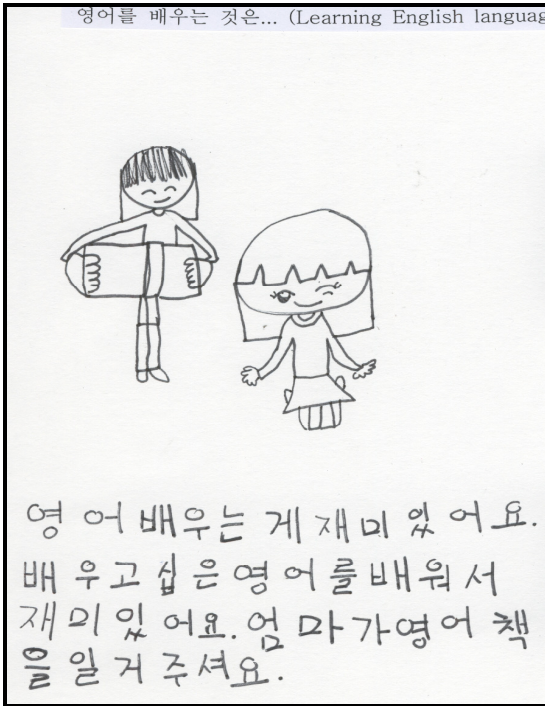 영어를 배우는 것은... (Learning English languag
영어배우는 게재미있어요.
배우고십은영어를배워서
재미있어요.엄마가영어책
을일거주셔요.